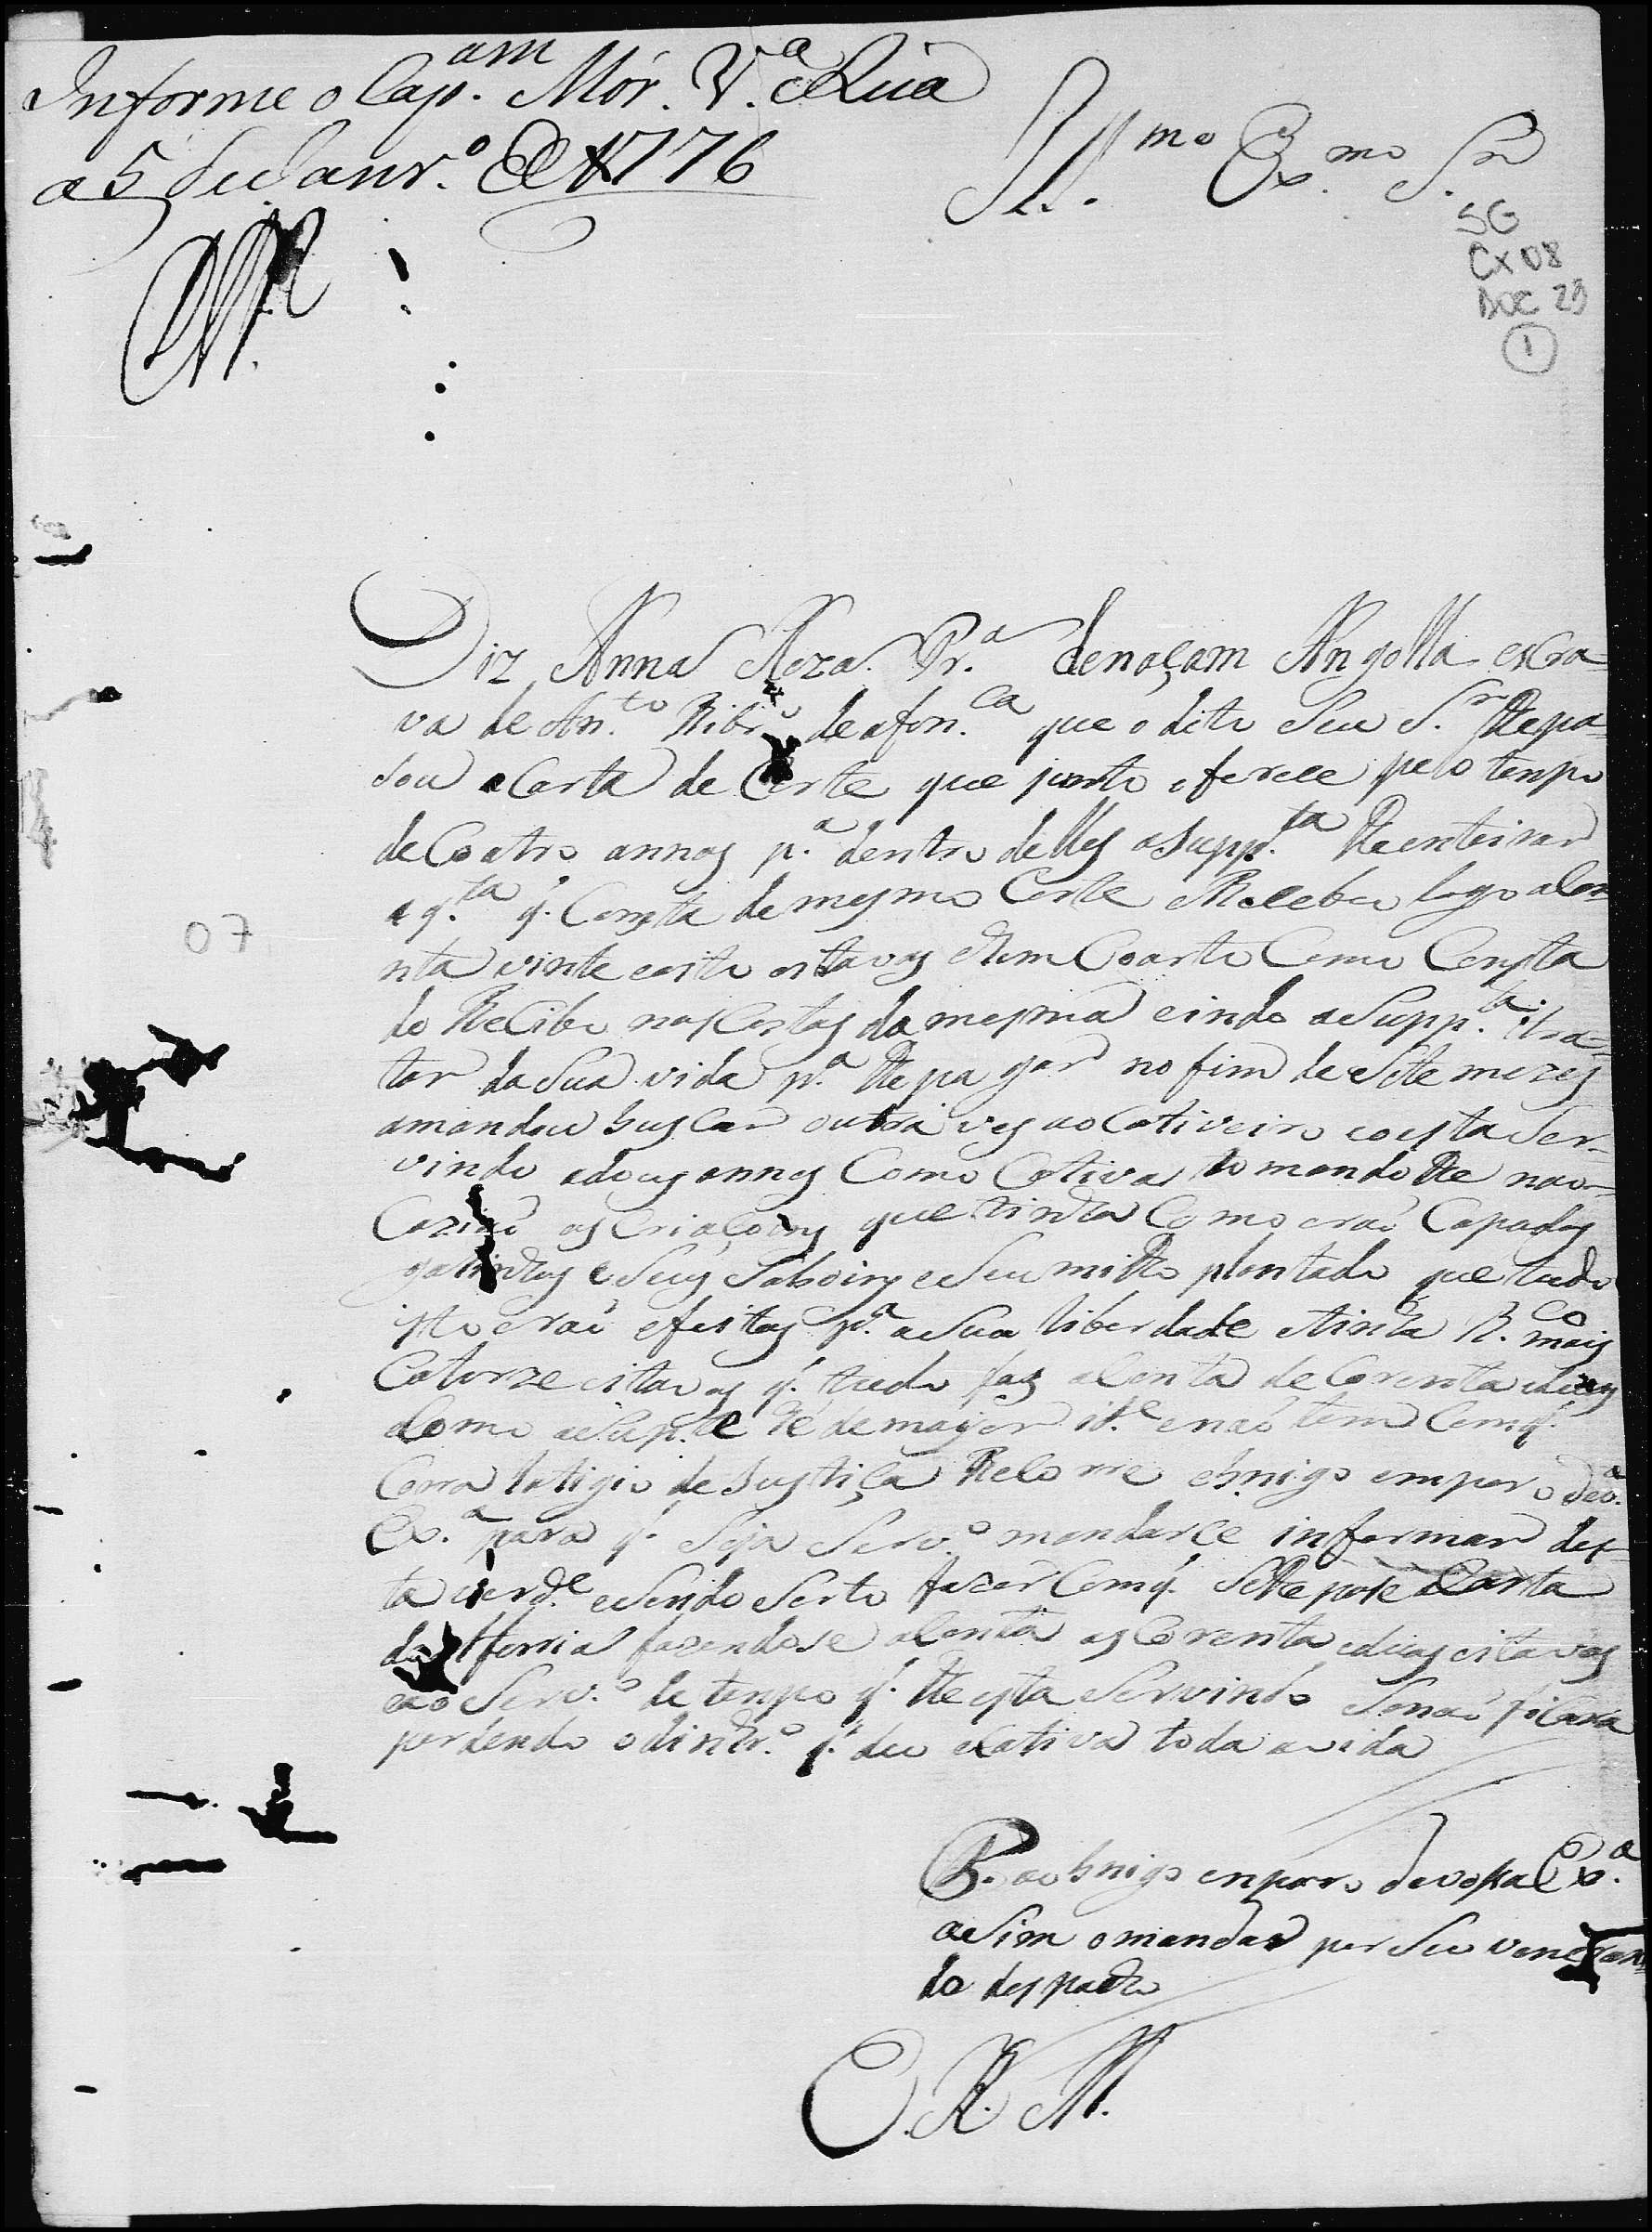 Informe o Cap.am Mór. V.a Rica
a 5 de Janr.o de 1776
Ill.mo Ex.mo S.r
SG
CX 08
DOC 23
1
Diz Anna Roza Pr.a de naçam Angolla escra-
va de An.to Ribr.o de afon.ca que o dito Seu S.r lhe pa-
sou a Carta de Corte que junto oferece pelo tenpo
de Coatro annos p.a dentro delles a Supp.ta lhe enteirar
a q.ta q. Consta do mesmo Corte e Recebeu logo a Co-
nta vinte e oito oitavas e hum Coarto Como Consta
do Recibo nas Costas da mesma e indo a Supp.ta tra-
tar da Sua vida p.a lhe pagar no fim de Sete mezes
a mandou buscar outra ves ao Cativeiro e o esta Ser-
vindo a dous annos Como Cativa tomando lhe na o-
Caziaõ as Criaçoins que tinha Como eraõ Capados
galinhas e Seus e Seu milho plantado que tudo
isto eraõ efeitos p.a a Sua liberdade e tinha R.co mais
Catorze oitavas q. tudo fas a Conta de Corenta e duas
Como a Sup.te he de mayor id.e e naõ tem Com q.
Corra letigio de Justiça Recorre ao benigo enparo de V.
Ex.a para q. Seja Serv.o mandarce informar des-
ta verd.e e Sendo Serto fazer Com q. Se lhe pase Carta
de Alforria fazendose a Conta as Corenta e duas oitavas
e ao Serv.o do tenpo q. lhe esta Servindo Senaõ ficara
perdendo o dinhr.o q. deu e Cativa toda a vida
07
P. ao benigo enparo de vossa Ex.a
a Sim o mandar por Seu veneran-
do despacho
E. R. M.